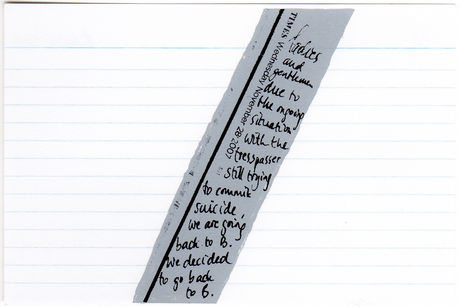 TIMES Wednesday November 28 2007
Ladies
and
gentlemen
due to
the ongoing
situation
with the
tresspasser
still trying
to commit
suicide,
we are going
back to B.
We decided
to go back
to B.